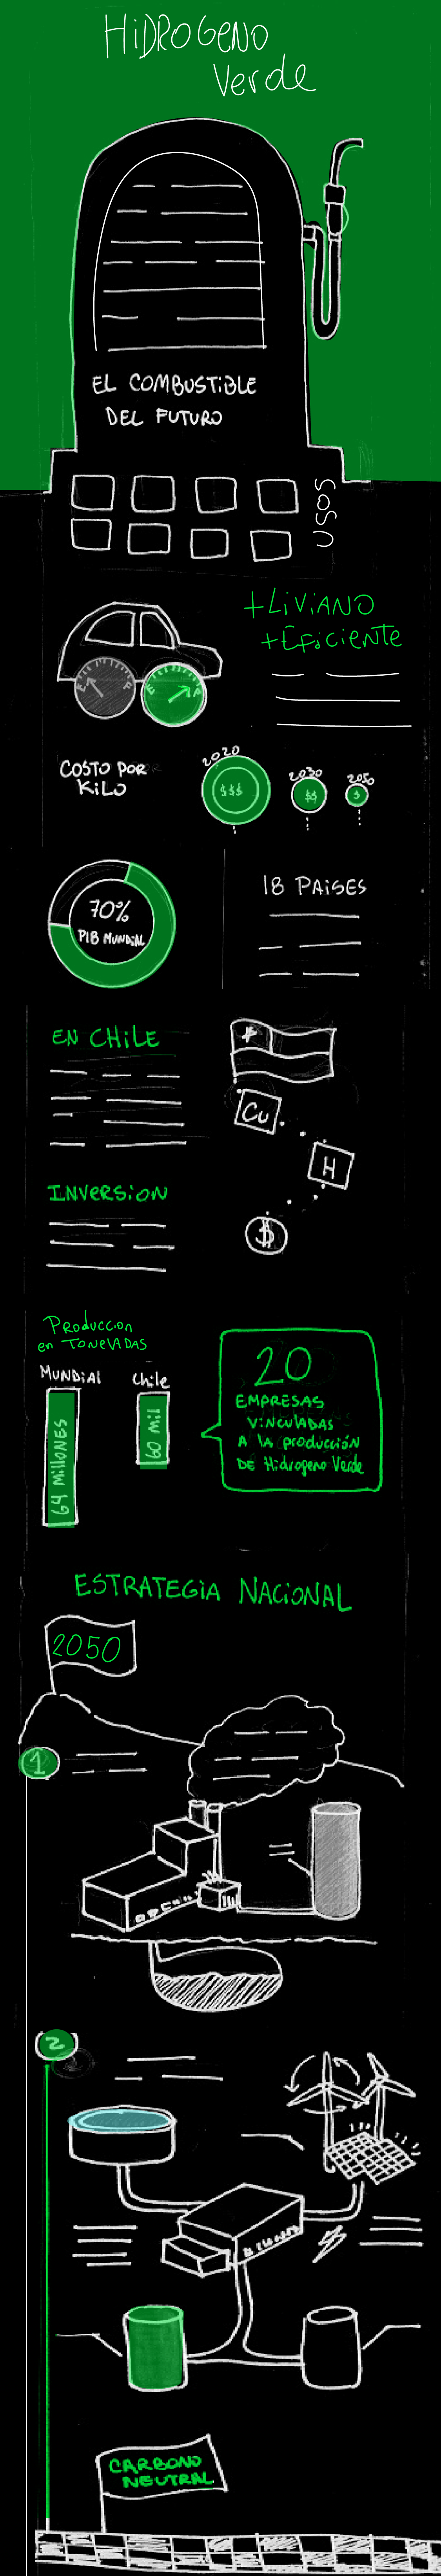 HiDROGENO
Verde
EL COMBUSTiBLE
DEL FUTURO
USOS
+LiViANO
+EficiENTE
E F
E F
COSTO POR
KiLO
2020
$$$
2030
$$
2050
$
70%
PIB MUNDiAL
18 PAiSES
EN CHiLE
Cu
H
$
INVERSiON
PRODUCCiON
en TONElADAS
MUNDiAl
Chile
64 MillONES
60 Mil
20
EMPRESAS
ViNCUlADAS
A lA pRODUCCióN
DE HidRógeno VeRde
ESTRATEGiA NACiONAL
2050
1
2
CARBONO
NEUTRAL